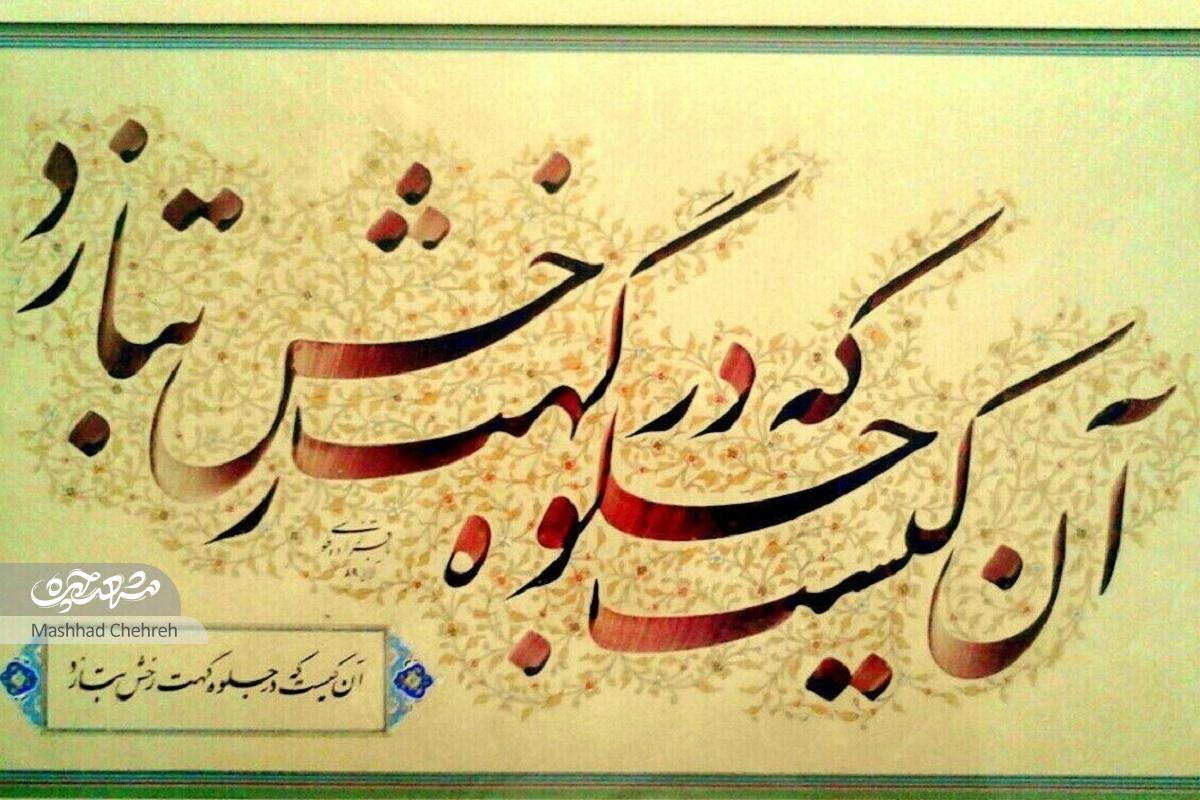 آن کیست که در جلوه گهت رخش بتازد
مشهد چهره
Mashhad Chehreh
آن کیست که در جلوه گهت رخش بتازد